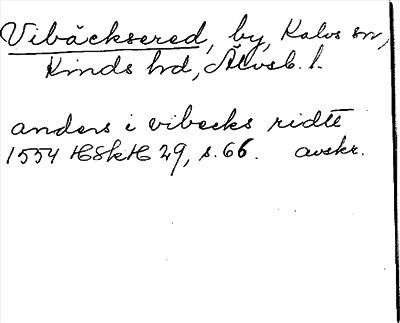 Vibäcksered, by, Kalvs sn,
Kinds hd, Älvsb. l.
anders i vibecks ridte
1554 HSkH 29, s. 66. avskr.